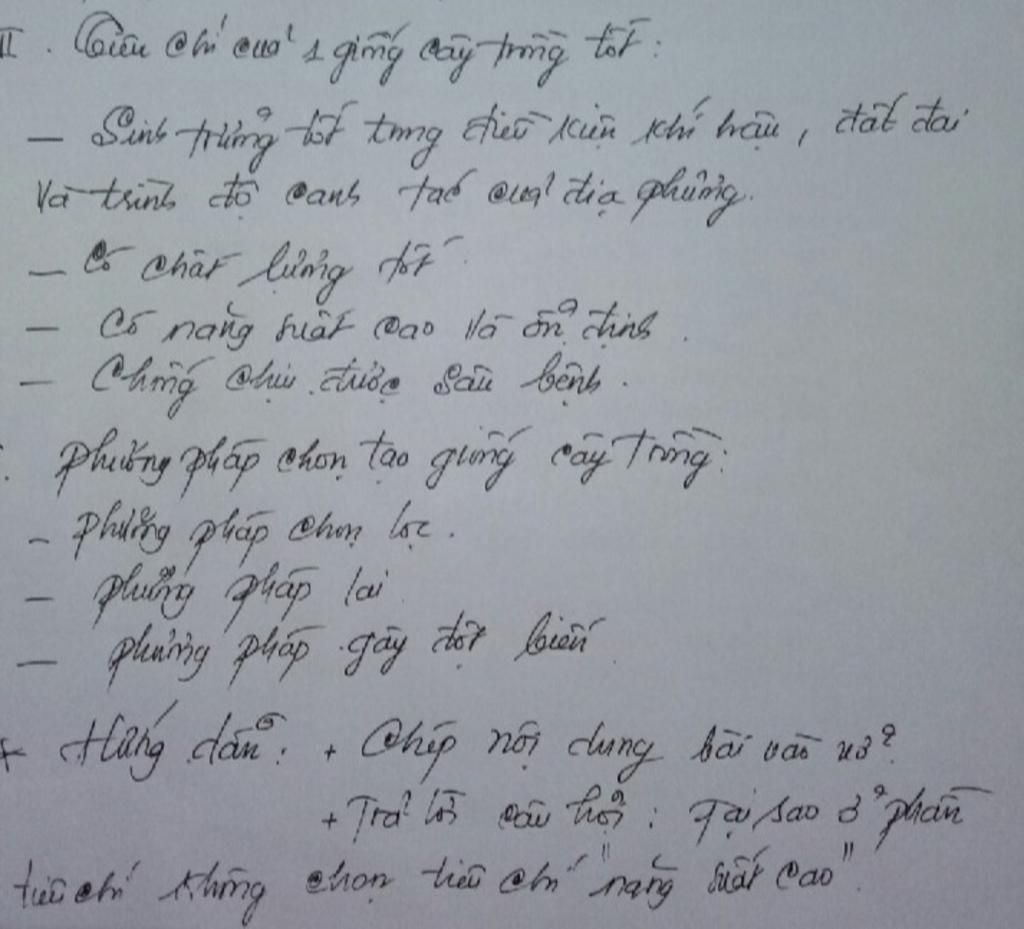 II. Tiêu chí của 1 giống cây trồng tốt:
– Sinh trưởng tốt trong điều kiện khí hậu, đất đai
và trình độ canh tác của địa phương.
– Có chất lượng tốt
– Có năng suất cao và ổn định.
– Chống chịu được sâu bệnh.
Phương pháp chọn tạo giống cây trồng:
- Phương pháp chọn lọc.
– phương pháp lai
– phương pháp gây đột biến
+ Hướng dẫn: + Chép nội dung bài vào vở?
+ Trả lời câu hỏi: Tại sao ở phần
tiêu chí không chọn tiêu chí "năng suất cao"